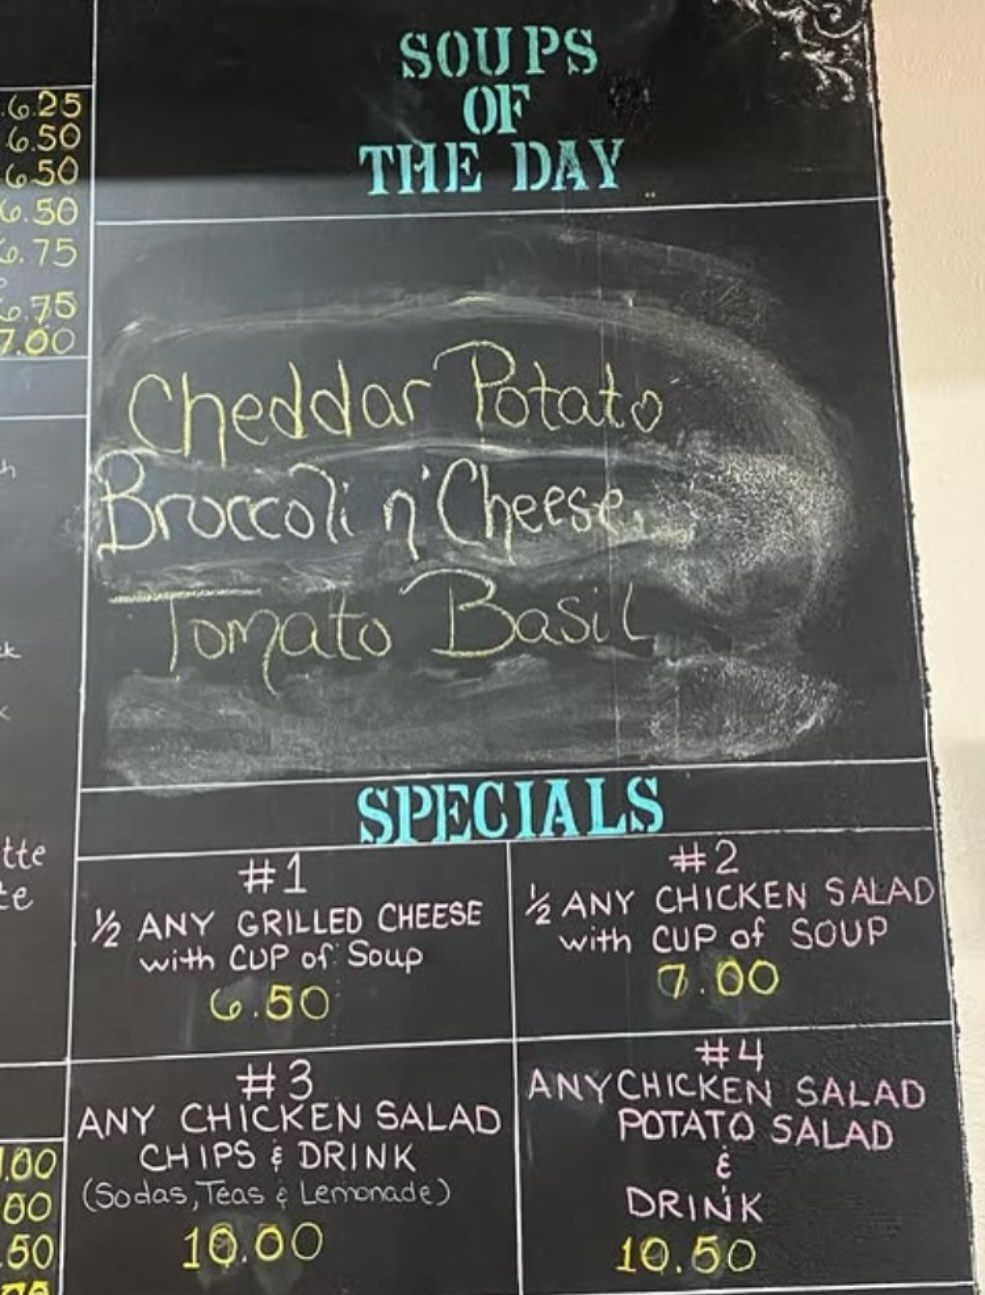 6.25
6.50
6.50
6.50
6.75
6.75
7.00
SOUPS
OF
THE DAY
Cheddar Potato
Broccoli n' Cheese
Tomato Basil
SPECIALS
#1
½ ANY GRILLED CHEESE
with CUP of Soup
6.50
#2
½ ANY CHICKEN SALAD
with CUP of SOUP
7.00
#3
ANY CHICKEN SALAD
CHIPS & DRINK
(Sodas, Teas & Lemonade)
10.00
#4
ANY CHICKEN SALAD
POTATO SALAD
&
DRINK
10.50